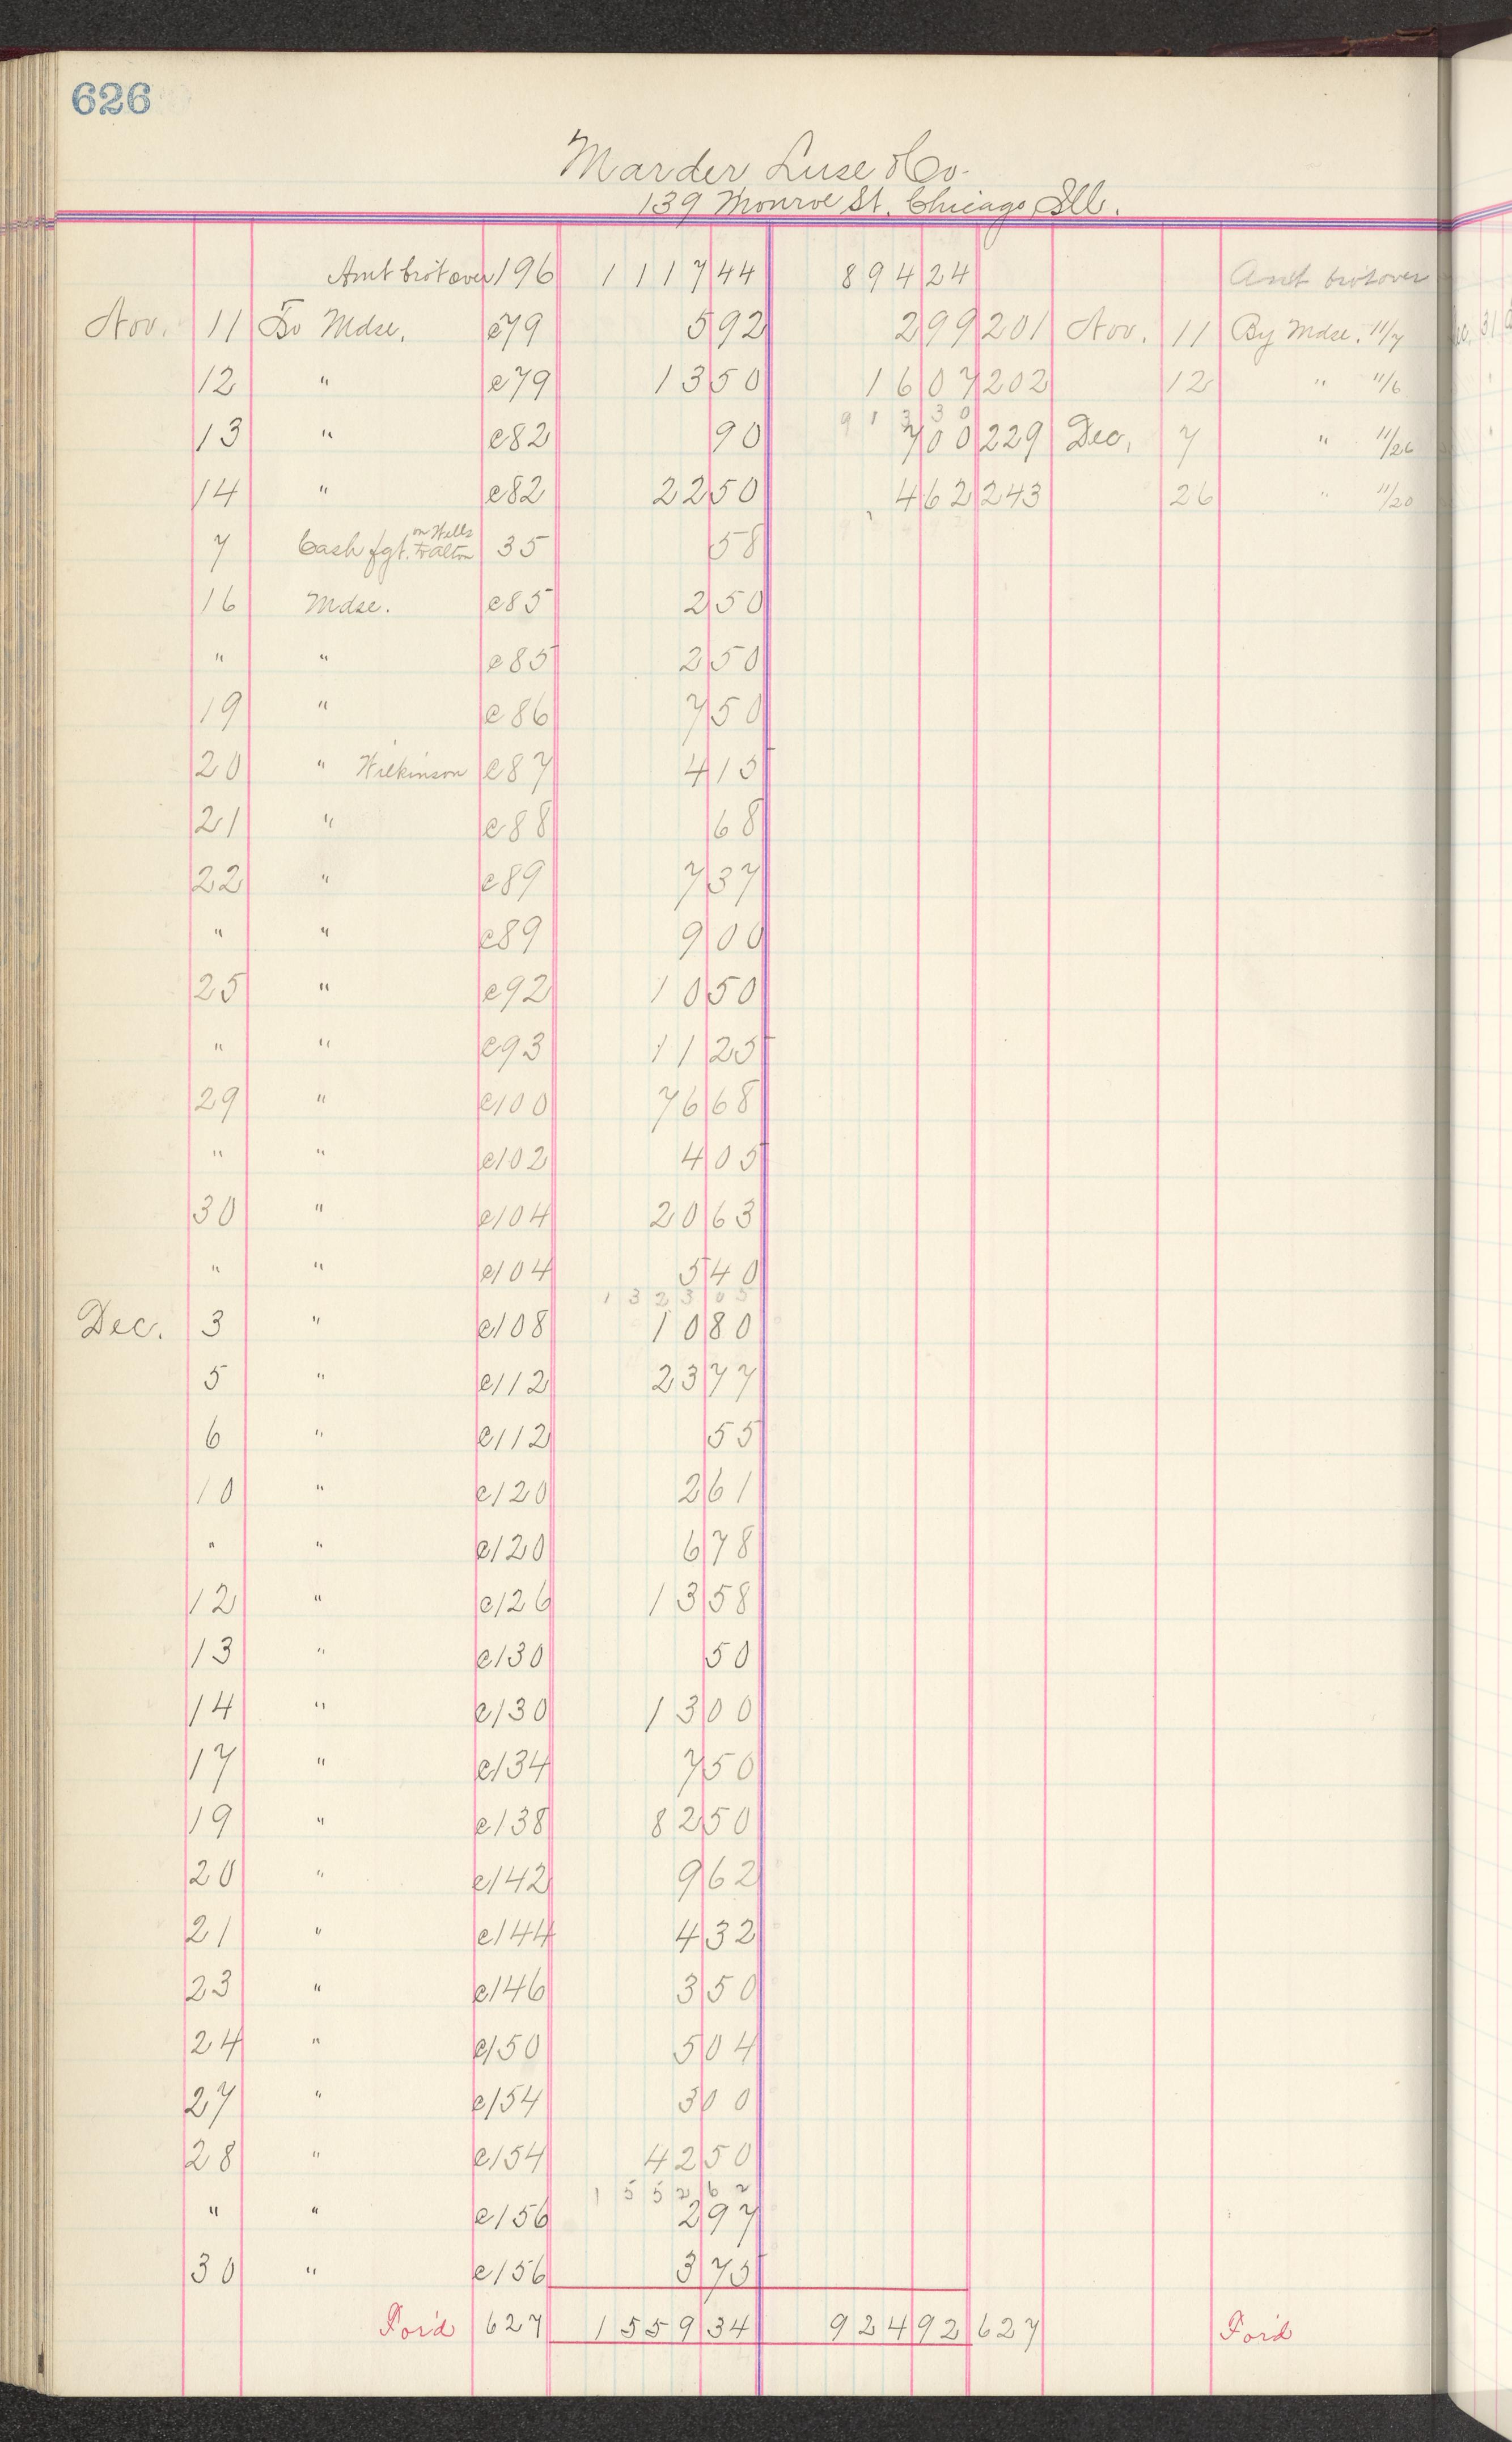 626
Marder Luse & Co.
139 Monroe St. Chicago Ill.
Amt brot over 196 1117 44 894 24 Amt brot over
Nov. 11 To Mdse. c79 5 92 2 99 201 Nov. 11 By Mdse. 11/7
12 " c79 13 50 16 07 202 12 " 11/6
913 30
13 " c82 90 7 00 229 Dec. 7 " 11/26
14 " c82 22 50 4 62 243 26 " 11/20
7 Cash fgt. on Wells to Alton 35 58
16 Mdse. c85 2 50
" " c85 2 50
19 " c86 7 50
20 " Wilkinson c87 4 15
21 " c88 68
22 " c89 7 37
" " c89 9 00
25 " c92 10 50
" " c93 11 25
29 " c100 76 68
" " c102 4 05
30 " c104 20 63
" " c104 5 40
1323 05
Dec. 3 " c108 10 80
5 " c112 23 77
6 " c112 55
10 " c120 2 61
" " c120 6 78
12 " c126 13 58
13 " c130 50
14 " c130 13 00
17 " c134 7 50
19 " c138 82 50
20 " c142 9 62
21 " c144 4 32
23 " c146 3 50
24 " c150 5 04
27 " c154 3 00
28 " c154 42 50
1552 62
" " c156 2 97
30 " c156 3 75
For'd 627 1559 34 924 92 627 For'd